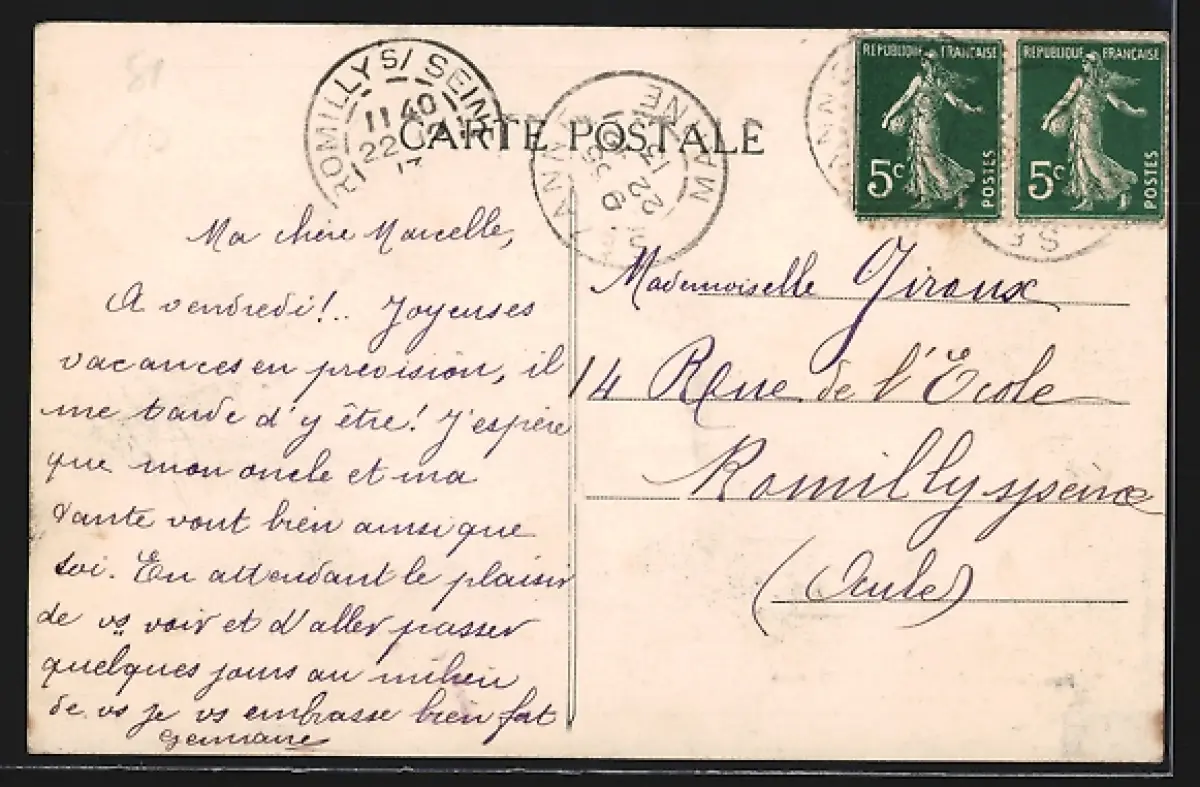 ROMILLY S/ SEINE
11 40
22 - 12
CARTE POSTALE
MARNE
REPUBLIQUE FRANÇAISE
5c
POSTES
REPUBLIQUE FRANÇAISE
5c
POSTES
Ma chère Marcelle,
A vendredi!.. Joyeuses
vacances en prévision, il
me tarde d'y être! J'espère
que mon oncle et ma
tante vont bien ainsi que
toi. En attendant le plaisir
de vs voir et d'aller passer
quelques jours au milieu
de vs je vs embrasse bien fort
Germaine
Mademoiselle Giroux
14 Rue de l'Ecole
Romilly s/seine
(Aube)